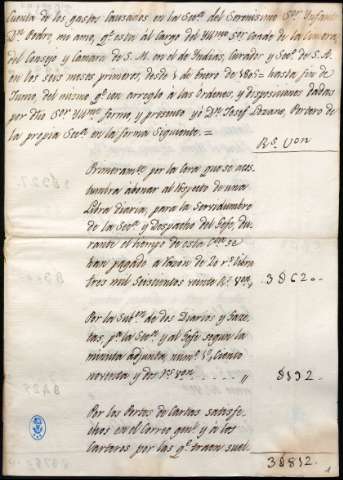 Cuenta de los gastos causados en la Secr.ª del Serenisimo S.or Infante
D.n Pedro, mi amo, q.e está al Cargo del Yll.mo S.or Conde de la
del Consejo y Camara de S. M. en el de Indias, Curador y Secr.º de S. A.
en los seis meses primeros, desde 1 de Enero de 1805 hasta fin de
Junio, del mismo q.e con arreglo á las Ordenes, y disposiciones dadas
por dho S.or Yll.mo forma y presenta yó D.n Josef Lozano, Portero de
la propia Secr.ª en la forma Siguiente. =
R.s Von
Primeram.te por la Cera que se acos-
tumbra abonar al respecto de una
Libra diaria, para la Servidumbre
de la Secr.ª y Despacho del Gefe, du-
rante el tiempo de esta Cta se
han pagado a razon de 20 r.s libra
tres mil Seiscientos veinte R.s Von,
3862..
Por la Subs.on de dos Diarios y Gaze-
tas, p.ª la Secr.ª y el Gefe segun la
minuta adjunta, num.º 1º, Ciento
noventa y dos r.s von
8192.
Por los Portes de Cartas satisfe-
chos en el Correo gen.l y a los
Carteros por las q.e traen suel
38812.